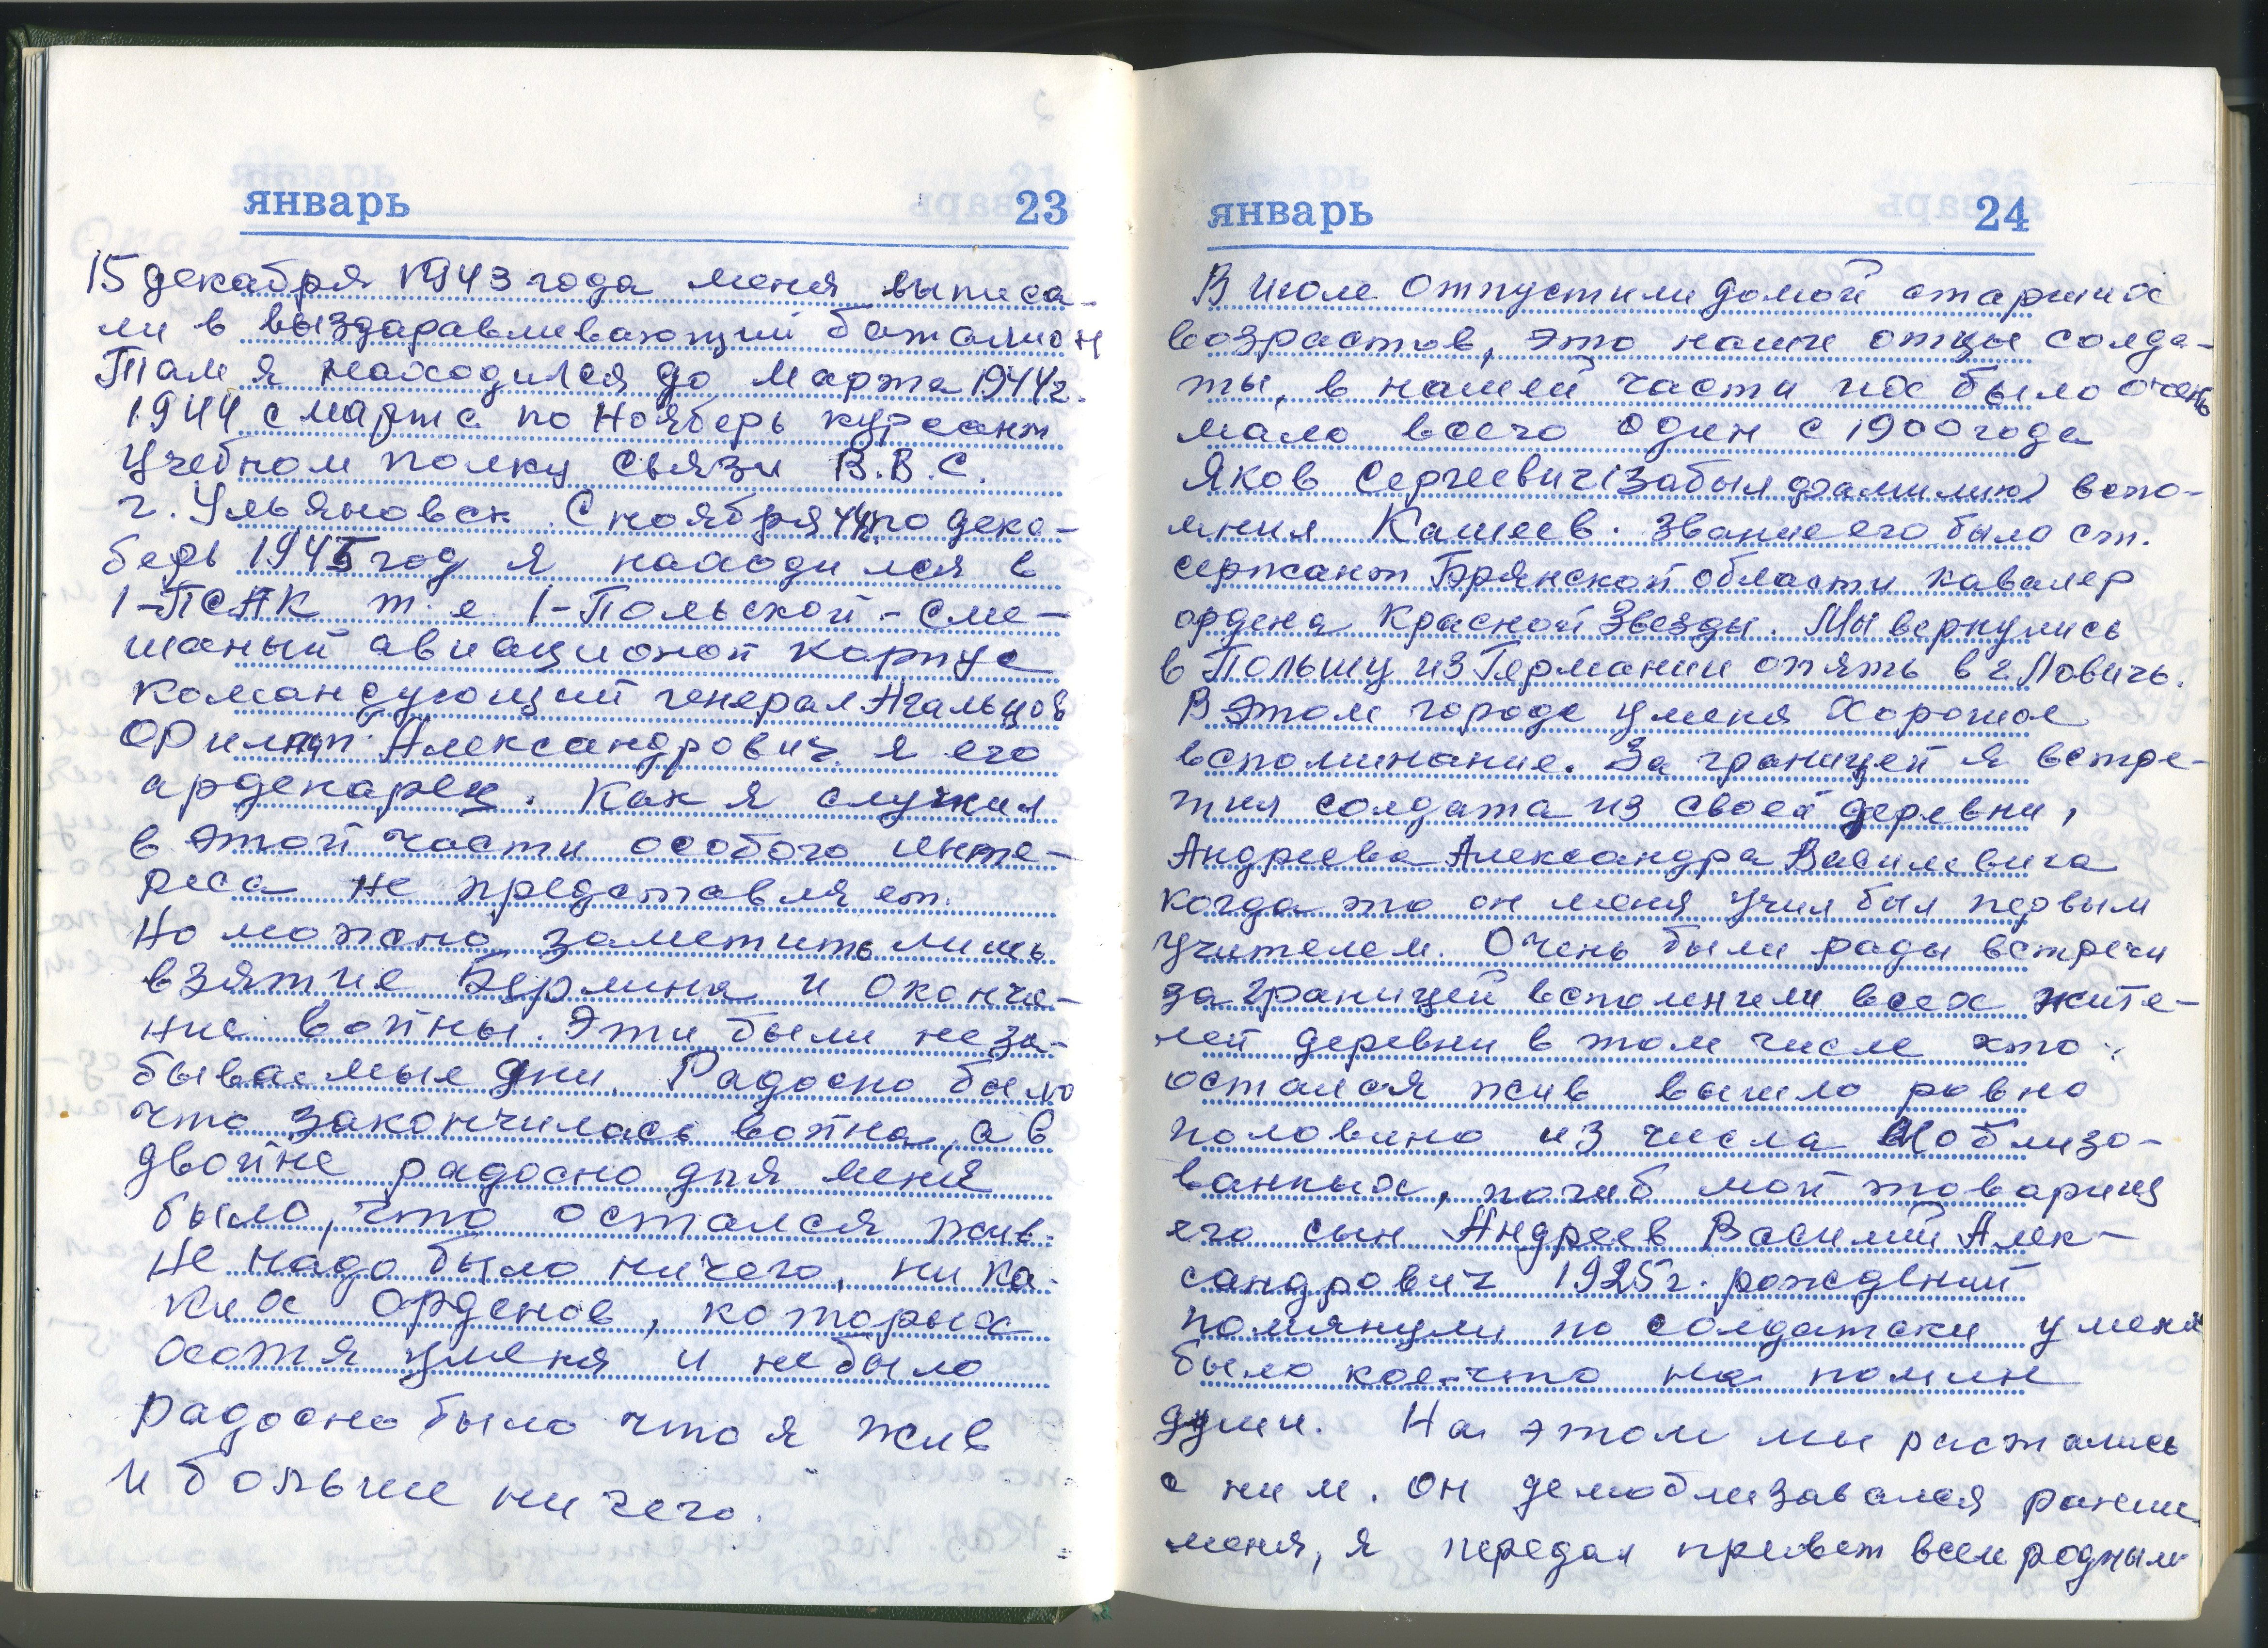 январь 23
15 декабря 1943 года меня выписа-
ли в выздаравливающий баталион
Там я находился до марта 1944г.
1944 с марта по Ноябрь курсант
Учебном полку связи В.В.С.
г. Ульяновск. С ноября 44 по дека-
берь 1945 год я находился в
1-ПСАК т.е. 1-Польской-Сме-
шаный авиационой корпус
командующий генерал Агальцов
Филипп Александрович я его
арденарец. Как я служил
в этой части особого инте-
реса не представляет.
Но можно заметить лишь
взятие Берлина и оконча-
ние войны. Эти были неза-
бываемые дни. Радосно было
что закончилась война, а в
двойне радосно для меня
было, что остался жив.
Не надо было ничего, ни ка-
ких орденов, которых
хотя уменя и небыло
радосно было что я жив
и больше ничего.
январь 24
В Июле отпустили домой старших
возрастов, это наши отцы солда-
ты, в нашей части их было очень
мало всего один с 1900 года
Яков Сергеевич (забыл фамилию) вспо-
мнил Кашеев. Звание его было ст.
сержант Брянской области кавалер
ордена Красной Звезды. Мы вернулись
в Польшу из Германии опять в г Ловичь.
В этом городе уменя Хорошое
вспоминание. За границей я встре-
тил солдата из своей деревни,
Андреева Александра Василевича
когда то он меня учил был первым
учителем. Очень были рады встречи
за границей вспомнили всех жите-
лей деревни в том числе хто
остался жив вышло ровно
половино из числа Моблизо-
ванных, погиб мой товарищ
его сын Андреев Василий Алек-
сандрович 1925г. рождений
помянули по солдатски у меня
было кое-что на помин
души. На этом мы растались
с ним. Он демоблизавался раньше
меня, я передал превет всем родным